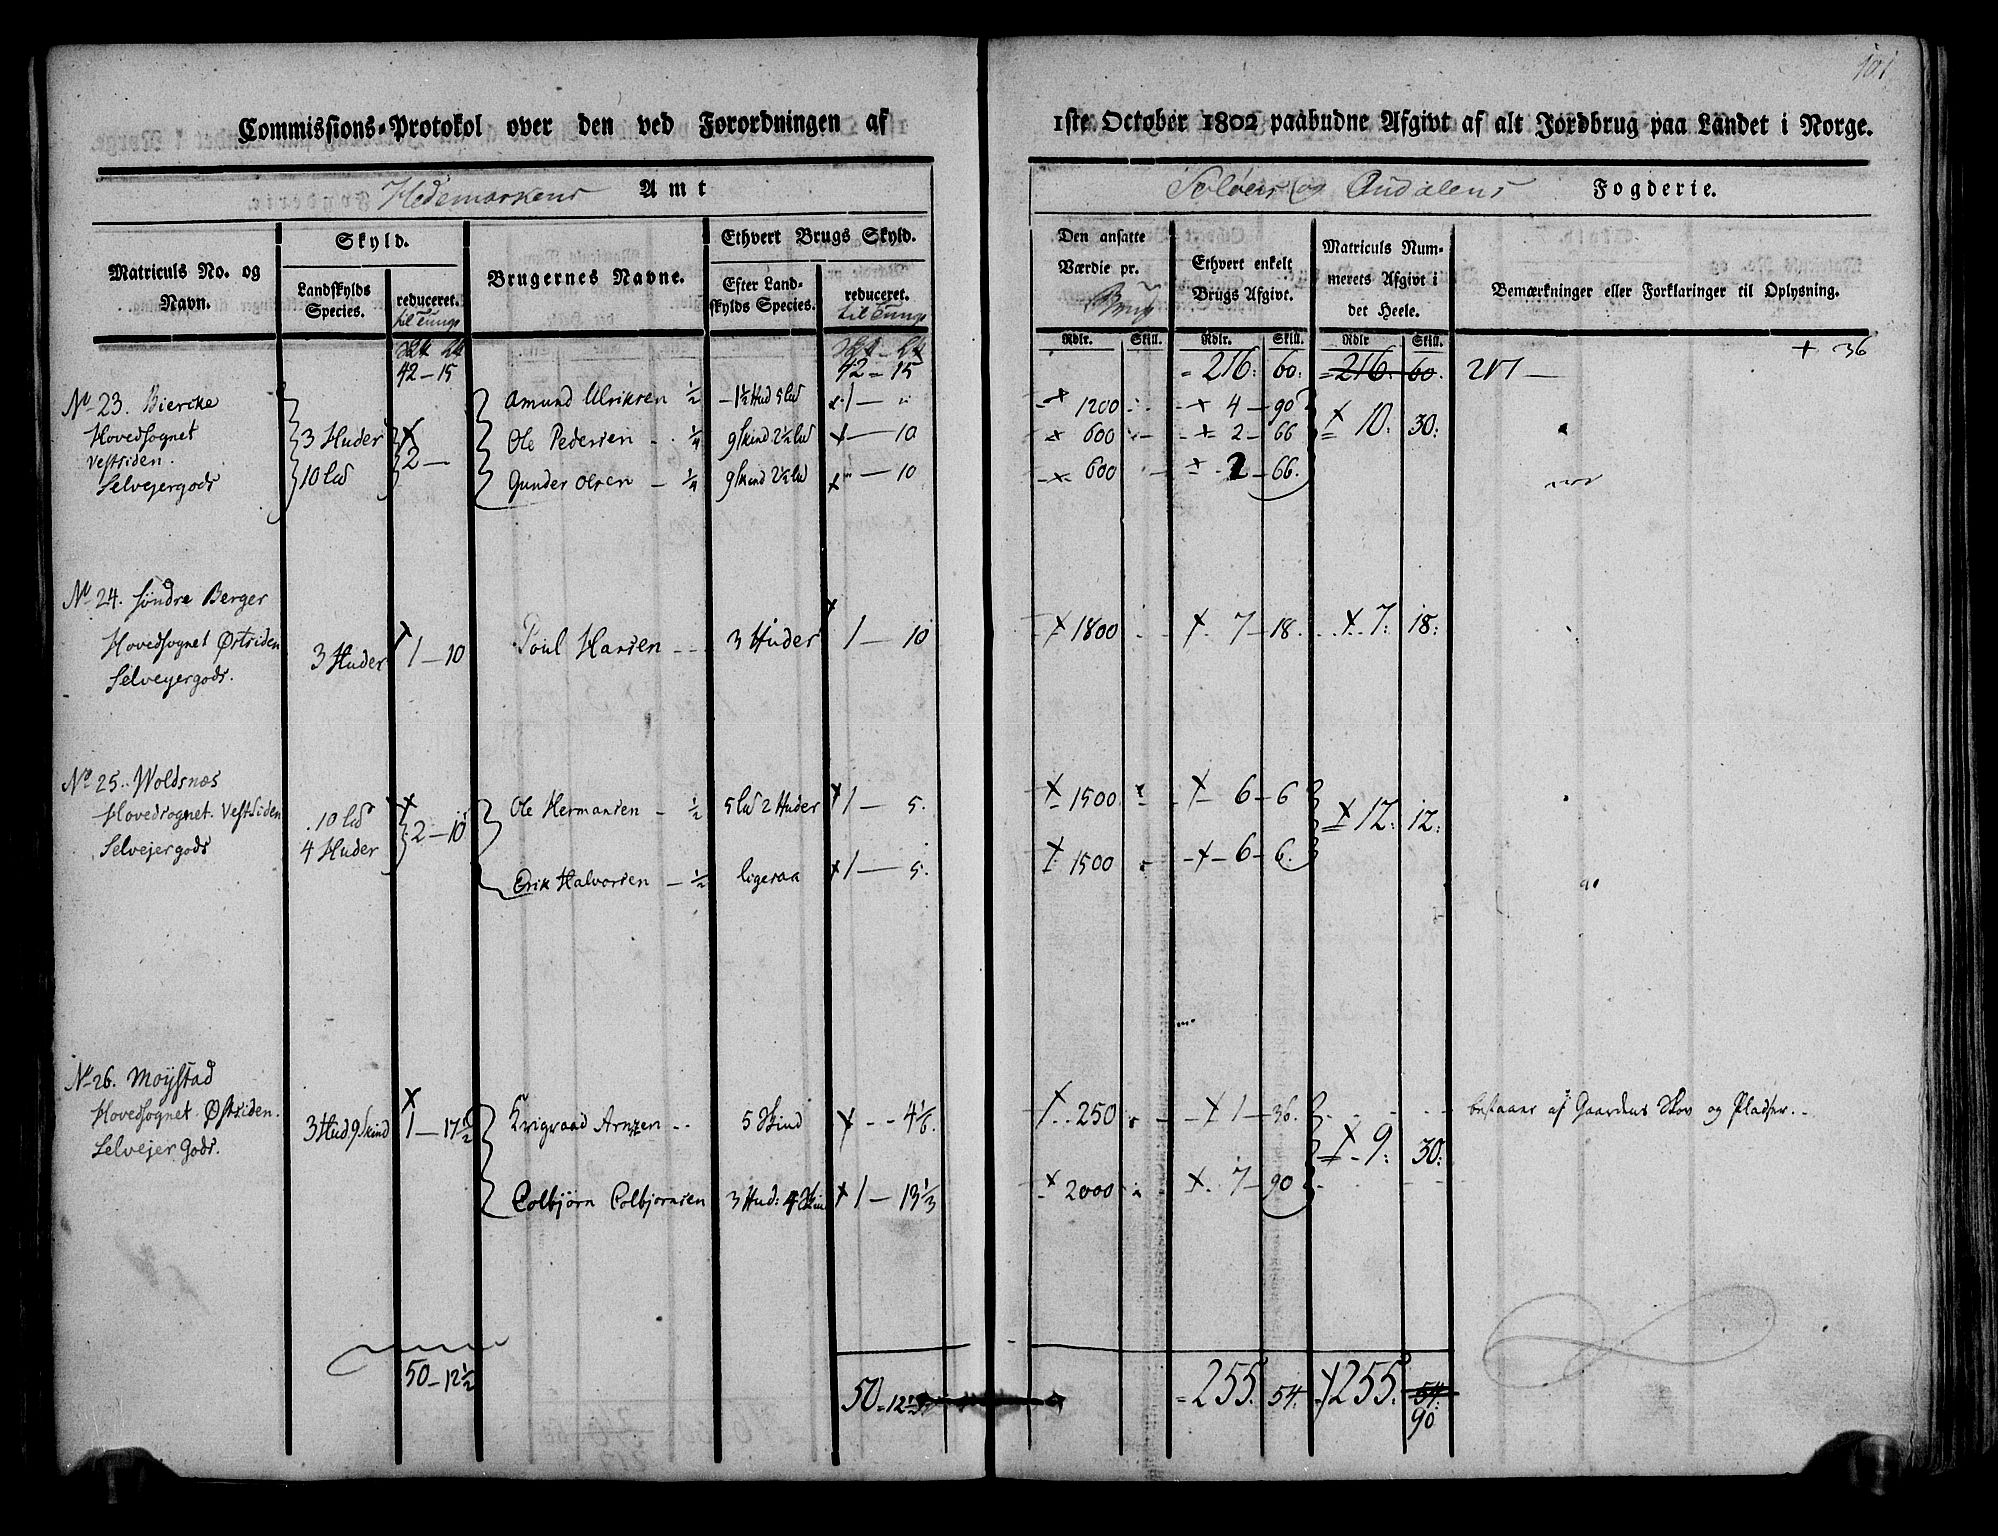 101
Commissions-Protokol over den ved Forordningen af 1ste October 1802 paabudne Afgivt af alt Jordbrug paa Landet i Norge.
Hedemarkens Amt
Soløers og Oudalens Fogderie.
Matriculs No. og Navn.
Skyld.
Landskylds Species.
reduceret.
til Tunge
Brugernes Navne.
Ethvert Brugs Skyld.
Efter Landskylds Species.
reduceret.
til Tunge
Den ansatte Værdie pr. Brug
Ethvert enkelt Brugs Afgivt.
Matriculs Nummerets Afgivt i det Heele.
Bemærkninger eller Forklaringer til Oplysning.
Rdlr. Skill. Rdlr. Skill. Rdlr Skill.
42-15 42-15 = 216: 60: =216. 60. 217 — + 36
No 23. Biercke Amund Ulriksen ½ 1½ Hud 5 lb 1 — " 1200 4-90
Hovedsognet 3 Huder Ole Pedersen ¼ 9 skind 2½ lb — 10 600 2-66 10. 30:
Vestsiden. 2 —
Selvejergods 10 lb Gunder Olsen ¼ 9 skind 2½ lb — 10 600 2-66.
No 24. Søndre Berger
Hovedsognet Østsiden 3 Huder 1-10 Poul Hansen 3 Huder 1 — 10 1800 7-18. 7: 18:
Selveyergods.
No 25. Woldsnæs
Hovedsognet Vestsiden 10 lb Ole Hermansen ½ 5 lb 2 Huder 1 — 5. 1500 6-6 12: 12:
Selvejergods 4 Huder 2-10
Erik Halvorsen — ½ ligesaa 1 — 5. 1500 6-6.
No 26. Moystad
Hovedsognet Østsiden. 3 Hud. 9 Skind 1-17½ Krigvaad Arnzen 5 Skind 4⅙. 250 1-36. bestaaer af Gaardens Skov og Pladser.
Selvejer Gods. 9: 30:
Colbjørn Colbjørnsen 3 Hud: 4 Skin 1-13⅓ 2000 7-90
50-12½ 50-12½ = 255. 54. 255. 54:
90